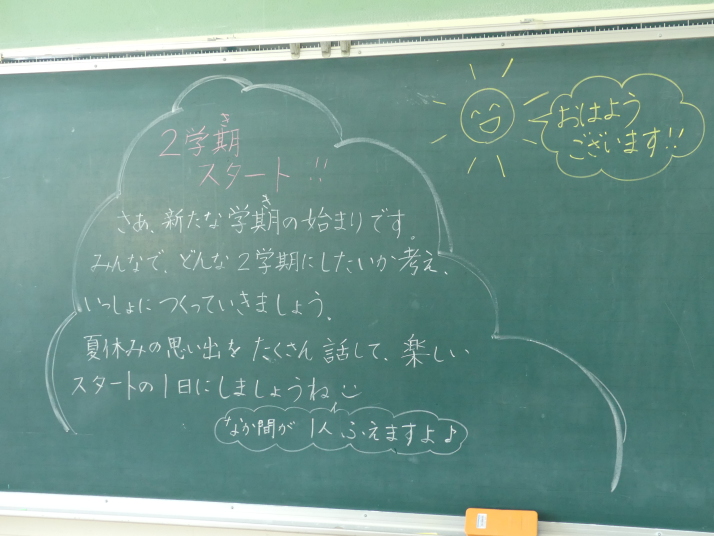 おはよう
ございます!!
２学期
き
スタート!!
さあ、新たな学期の始まりです。
き
みんなで、どんな２学期にしたいか考え、
いっしょにつくっていきましょう。
夏休みの思い出をたくさん話して、楽しい
スタートの１日にしましょうね
なか間が１人ふえますよ♪